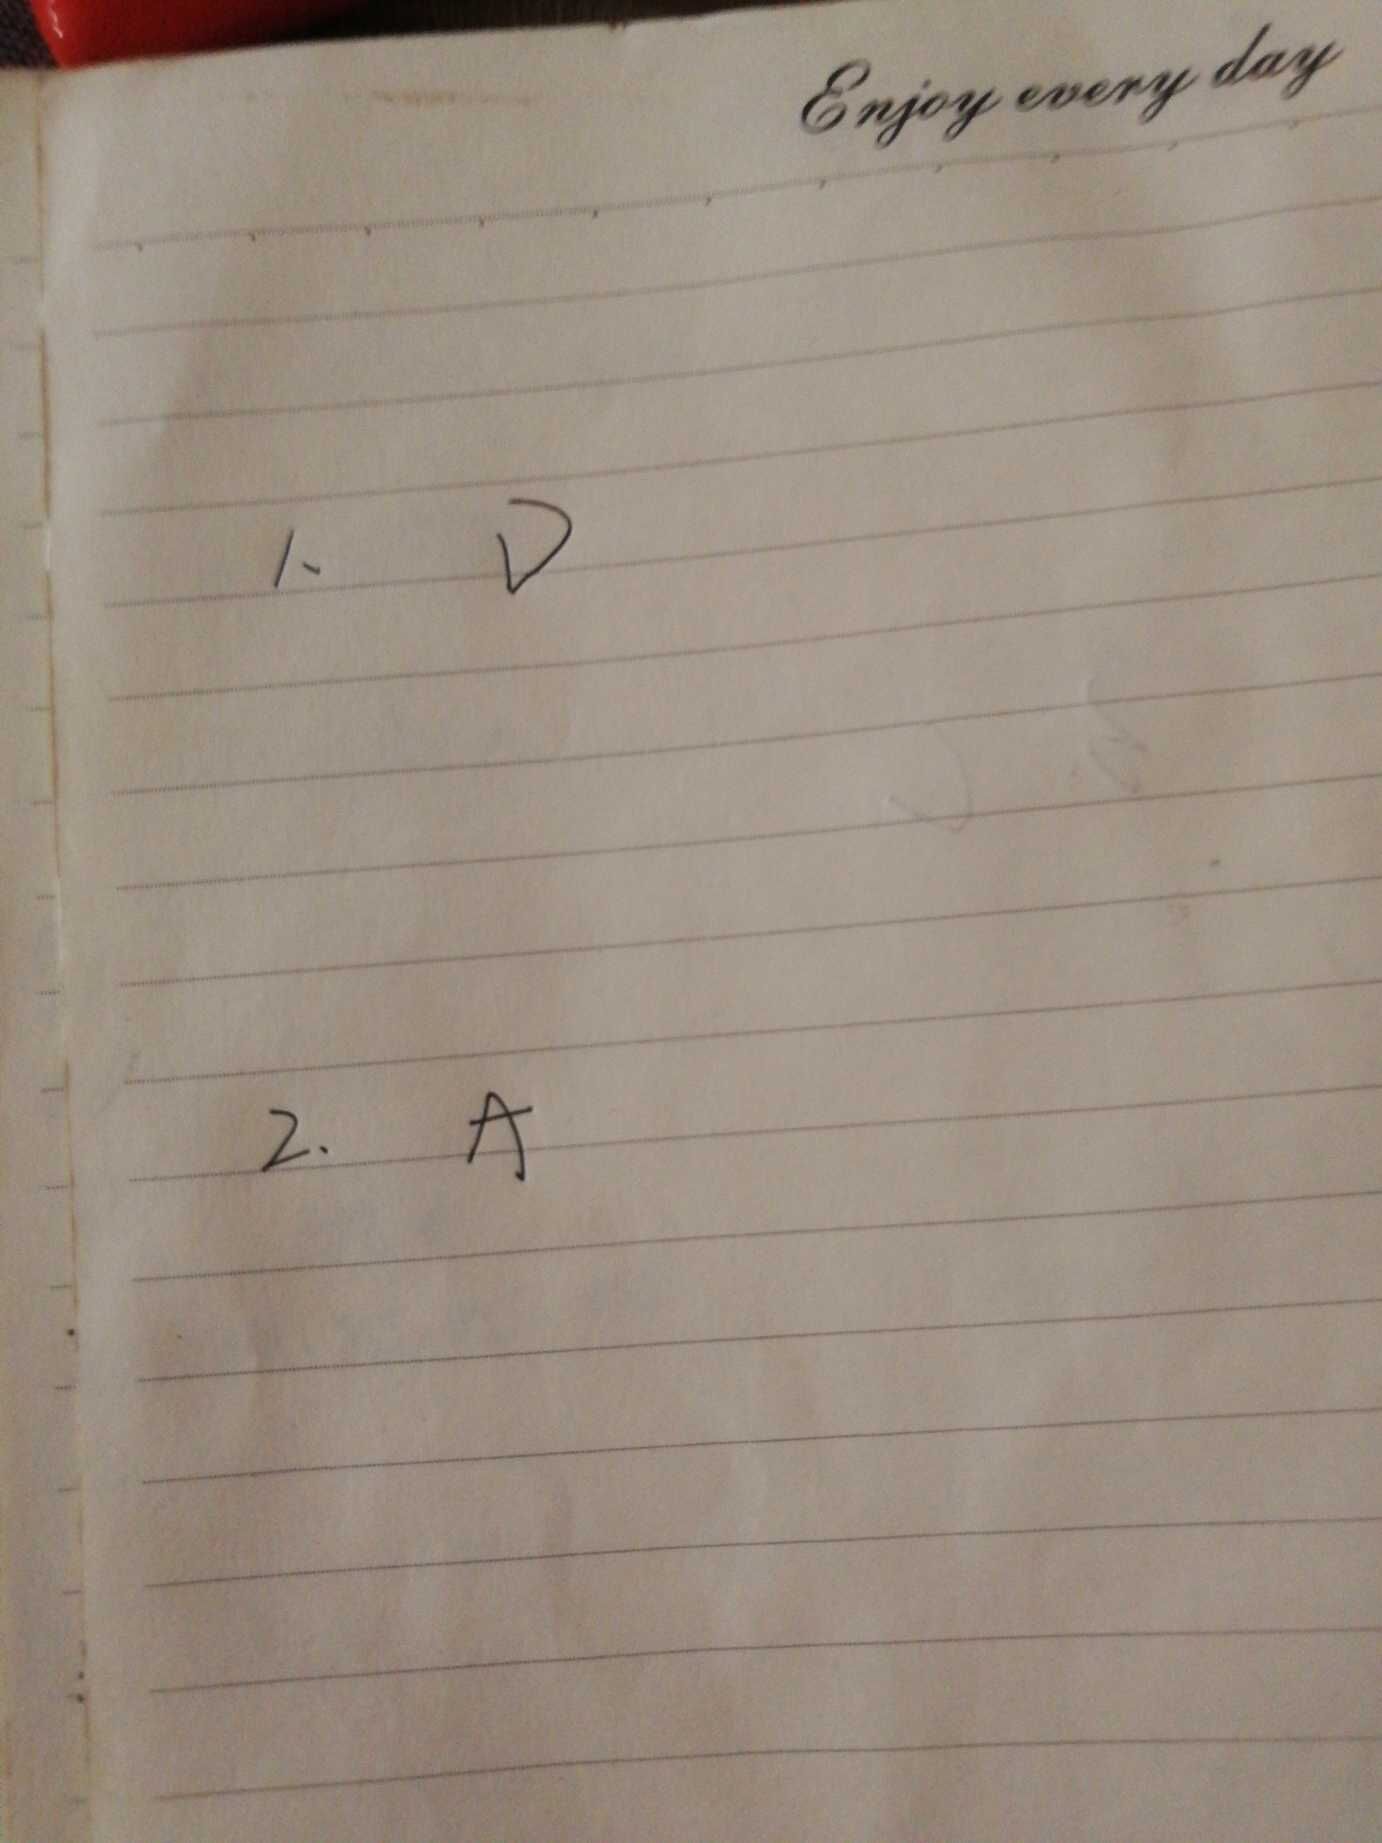 Enjoy every day
1. D
2. A